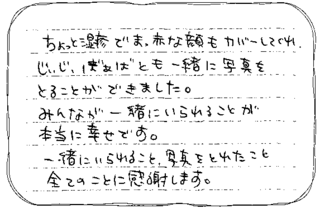 ちょっと湿疹でま、赤な顔もカバーしてくれ、
じぃじぃ、ばぁばとも一緒に写真を
とることができました。
みんなが一緒にいられることが
本当に幸せです。
一緒にいられること、写真をとれたこと
全てのことに感謝します。